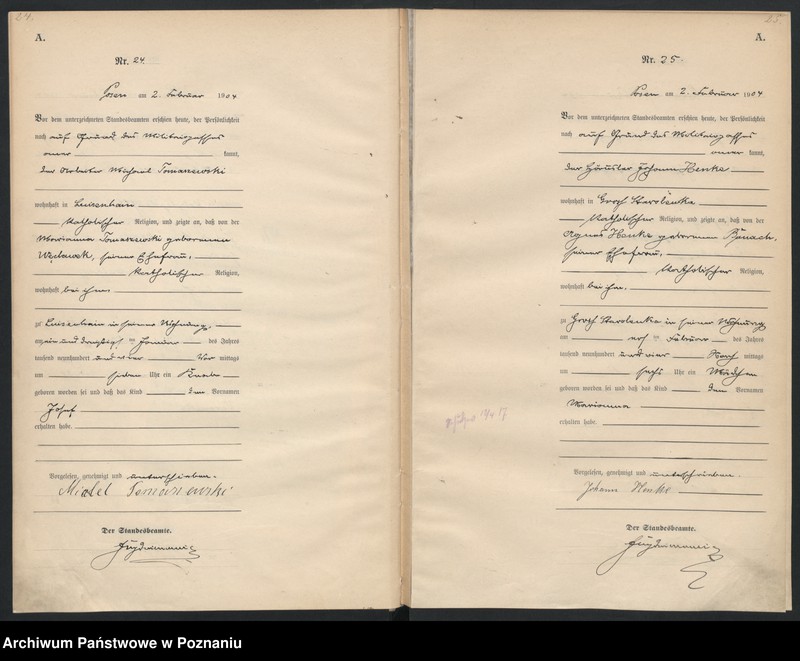 24.
A.
Nr. 24.
Posen am 2. Februar 1904
Vor dem unterzeichneten Standesbeamten erschien heute, der Persönlichkeit
nach auf Grund des Militairpasses
kannt,
der Arbeiter Michael Tomaszewski
wohnhaft in Luisenhain
katholischer Religion, und zeigte an, daß von der
Marianna Tomaszewski geborenen
seiner Ehefrau,
katholischer Religion,
wohnhaft bei ihm
zu Luisenhain in seiner Wohnung,
am ein und dreißigsten Januar des Jahres
tausend neunhundert und vier Vor mittags
um sieben Uhr ein Knabe
geboren worden sei und daß das Kind den Vornamen
Josef
erhalten habe.
Vorgelesen, genehmigt und unterschrieben.
Michel Tomaszewski
Der Standesbeamte.
25.
A.
Nr. 25.
Posen am 2. Februar 1904
Vor dem unterzeichneten Standesbeamten erschien heute, der Persönlichkeit
nach auf Grund des Militairpasses
kannt,
der Häusler Johann Henke
wohnhaft in Groß Starolenka
katholischer Religion, und zeigte an, daß von der
Agnes Henke geborenen Banach,
seiner Ehefrau,
katholischer Religion,
wohnhaft bei ihm.
zu Groß Starolenka in seiner Wohnung
am ersten Februar des Jahres
tausend neunhundert und vier Nach mittags
um sechs Uhr ein Mädchen
geboren worden sei und daß das Kind den Vornamen
Marianna
erhalten habe.
Vorgelesen, genehmigt und unterschrieben.
Johann Henke
Der Standesbeamte.
Archiwum Państwowe w Poznaniu